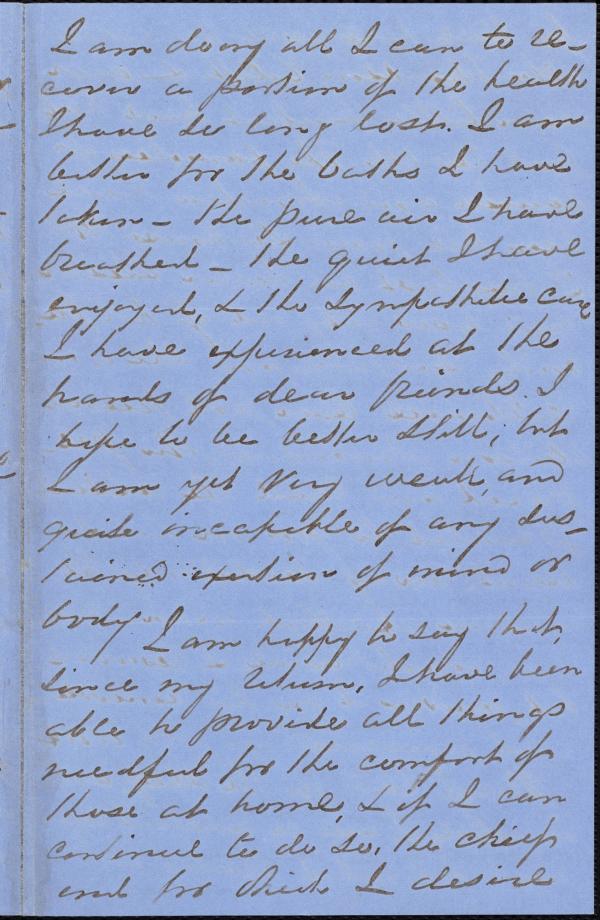 I am doing all I can to re-
cover a portion of the health
I have so long lost. I am
better for the baths I have
taken - the pure air I have
breathed - the quiet I have
enjoyed, & the sympathetic care
I have experienced at the
hands of dear friends. I
hope to be better still, but
I am yet very weak, and
quite incapable of any sus-
tained exertion of mind or
body. I am happy to say that,
since my return, I have been
able to provide all things
needful for the comfort of
those at home, & if I can
continue to do so, the chief
end for which I desire